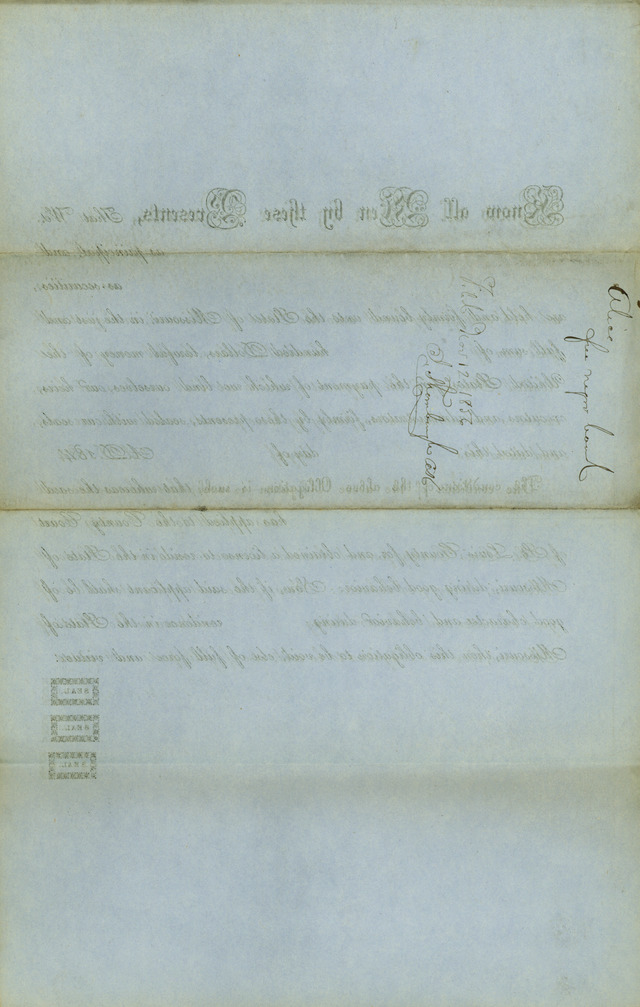 Alice
free negro bond
Know all Men by these Presents, That We
as principal, and
as securities,
are held and firmly bound unto the State of Missouri, in the just and
full sum of hundred Dollars, lawful money of the
United States, the payment of which we bind ourselves, our heirs,
executors and firmly by these presents, sealed with our seals,
and dated this day of A.D. 184
The condition of the above Obligation is such, that whereas the said
has applied to the County Court
of St. Louis County for and obtained a license to reside in the State of
Missouri, during good behavior: Now, if the said applicant shall be of
good character and behavior during residence in the State of
Missouri, then this obligation to be void, else of full force and virtue.
SEAL
SEAL
SEAL